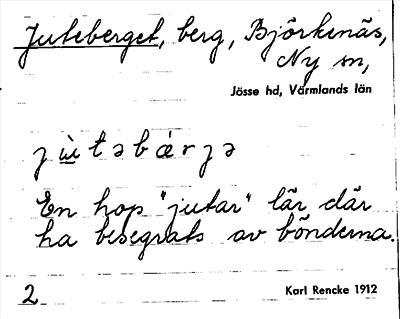 Juteberget, berg, Björkenäs,
Ny sn,
Jösse hd, Värmlands län
jùtəbærjə
En hop "jutar" lär där
ha besegrats av bönderna.
2
Karl Rencke 1912